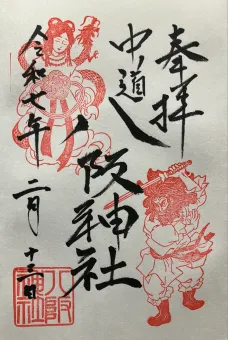 奉拝
中道
八阪神社
令和七年
二月
十三日
八阪
神社